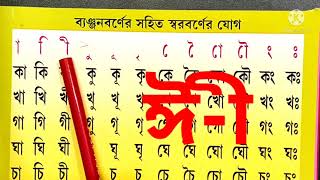 ব্যঞ্জনবর্ণের সহিত স্বরবর্ণের যোগ
া ি ী ু ূ ৃ ে ৈ ো ৌ ং ঃ
কা কি কী কু কূ কৃ কে কৈ কো কৌ কং কঃ
খা খি খী খু খূ খং খঃ
ঈ-ী
গা গি গী গু গূ গং গঃ
ঘা ঘি ঘী ঘূ ঘৃ ঘে ঘৈ ঘো ঘৌ ঘং ঘঃ
চা চি চী চূ চৃ চে চৈ চো চৌ চং চঃ